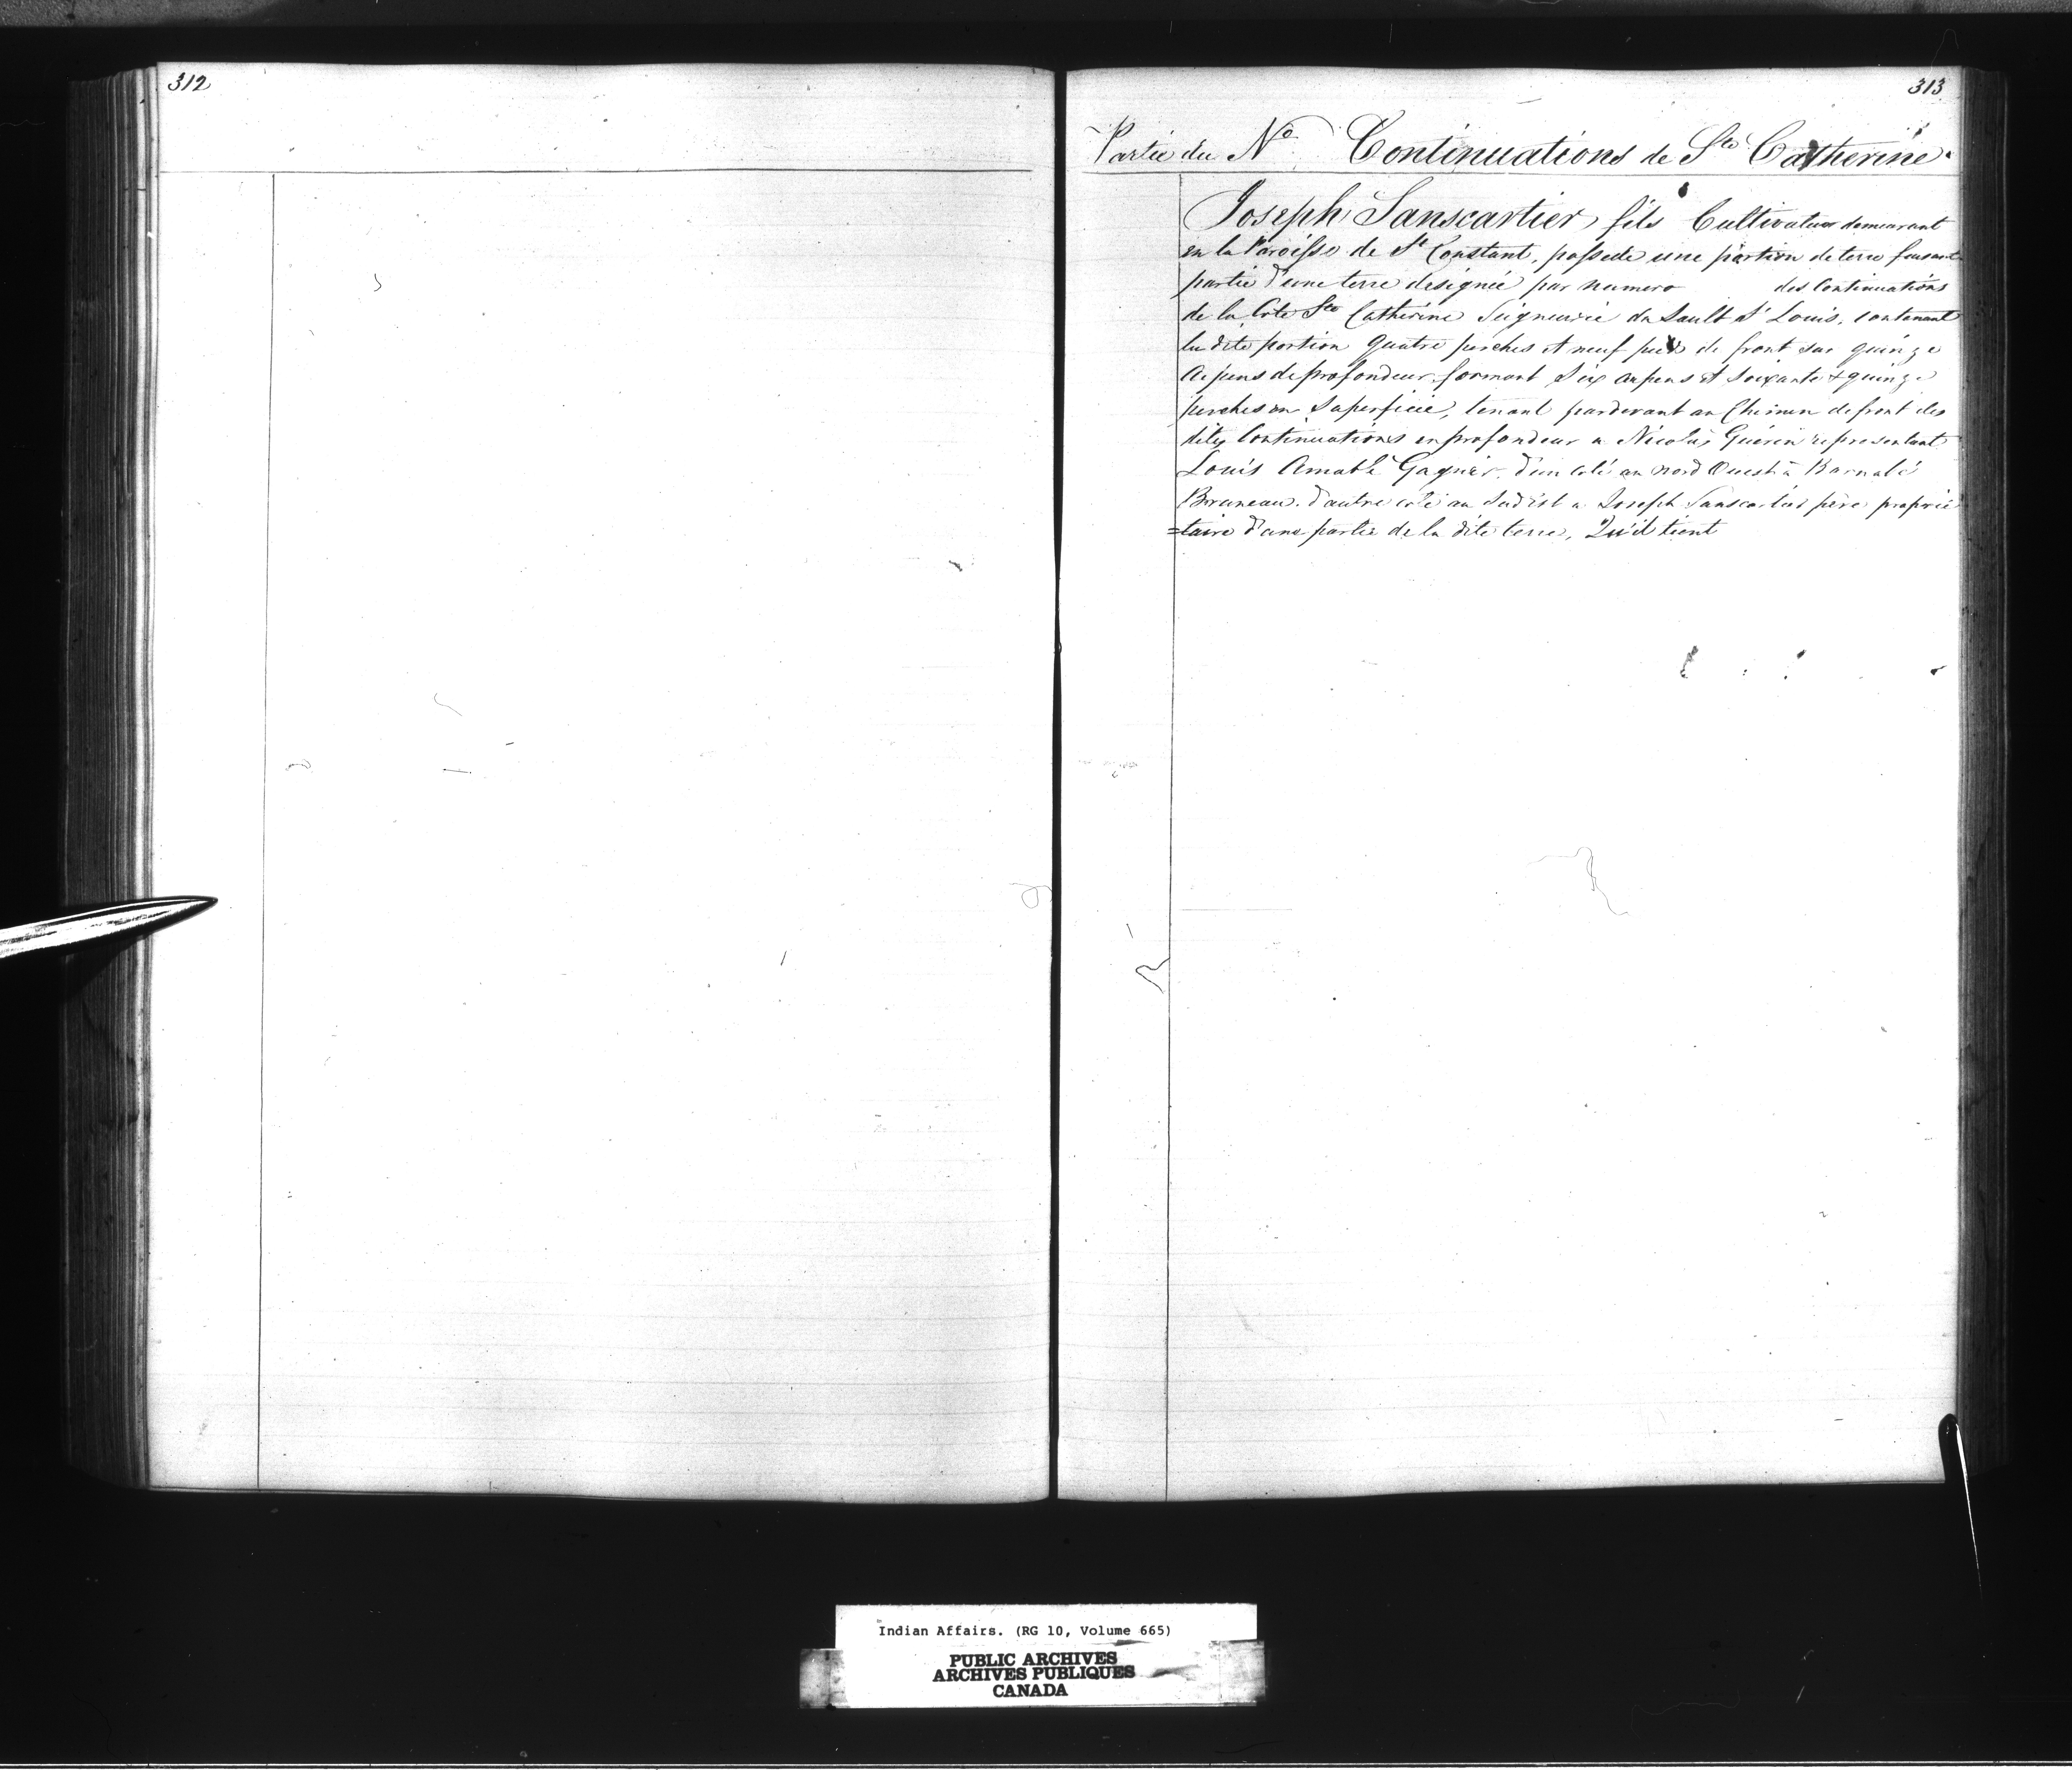 312
313
Partie du No Continuations de Ste Catherine.
Joseph Sanscartier fils Cultivateur demeurant
en la Paroisse de St Constant, possede une portion de terre faisant
partie d'une terre designée par numero des Continuations
de la Cote Ste Catherine Seigneurie du Sault St Louis, contenant
la dite portion quatre perches et neuf pieds de front sur quinze
arpens de profondeur, formant Six arpens et soixante & quinze
perches en Superficie, tenant pardevant au Chemin de front des
dites Continuations en profondeur a Nicolas Guérin representant
Louis Amable Gagnier, d'un coté au nord Ouest à Barnabé
Bruneau. d'autre coté au Sud est a Joseph Sanscartier père proprié
=taire d'une partie de la dite terre, Qu'il tient
Indian Affairs. (RG 10, Volume 665)
PUBLIC ARCHIVES
ARCHIVES PUBLIQUES
CANADA